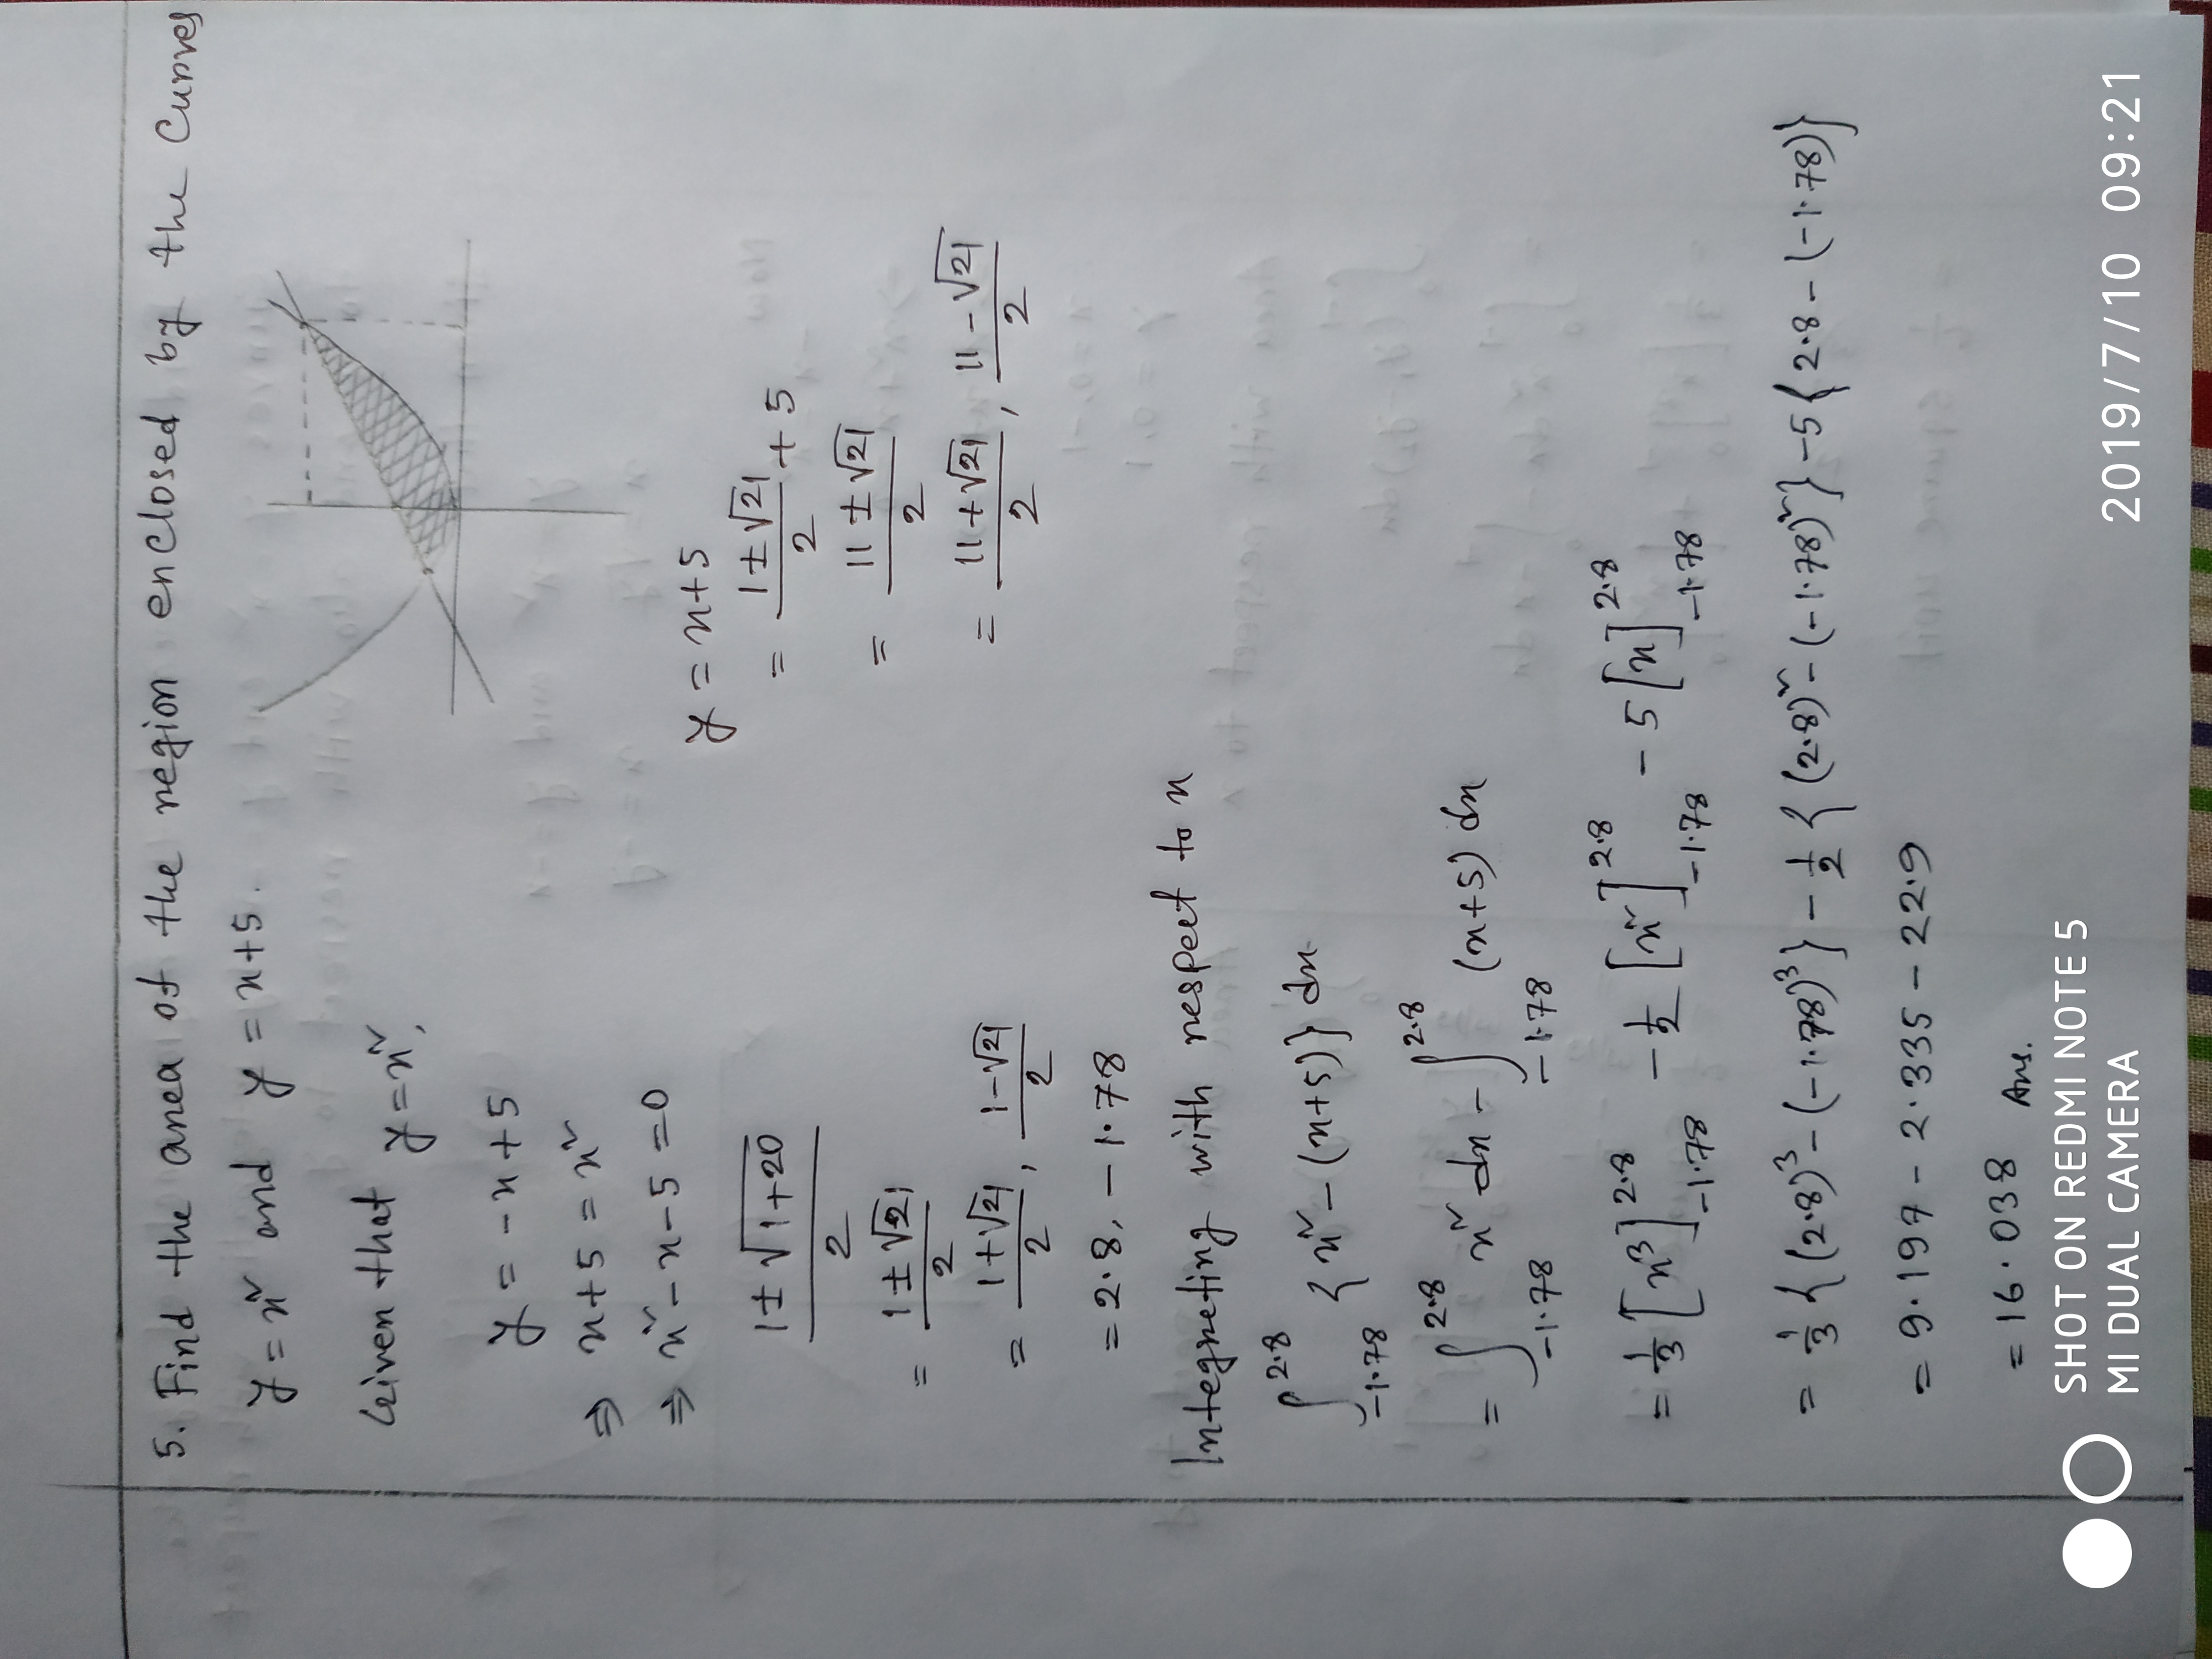 5. Find the area of the region enclosed by the Curves
y = x² and y = x+5.
Given that y = x²,
y = -x+5
⇒ x+5 = x²
⇒ x² - x - 5 = 0
1 ± √1+20 / 2
= 1 ± √21 / 2
= 1+√21 / 2 , 1-√21 / 2
= 2.8, - 1.78
y = x+5
= 1 ± √21 / 2 + 5
= 11 ± √21 / 2
= 11 + √21 / 2 , 11 - √21 / 2
Integreting with respect to x
∫_{-1.78}^{2.8} { x² - (x+5)} dx
= ∫_{-1.78}^{2.8} x² dx - ∫_{-1.78}^{2.8} (x+5) dx
= 1/3 [x³]_{-1.78}^{2.8} - 1/2 [x²]_{-1.78}^{2.8} - 5 [x]_{-1.78}^{2.8}
= 1/3 { (2.8)³ - (-1.78)³} - 1/2 { (2.8)² - (-1.78)²} - 5 { 2.8 - (-1.78)}
= 9.197 - 2.335 - 22.9
= 16.038 Ans.
SHOT ON REDMI NOTE 5
MI DUAL CAMERA
2019/7/10 09:21